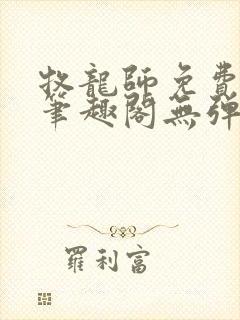 牧龍師免費
筆趣閣無彈
羅利富